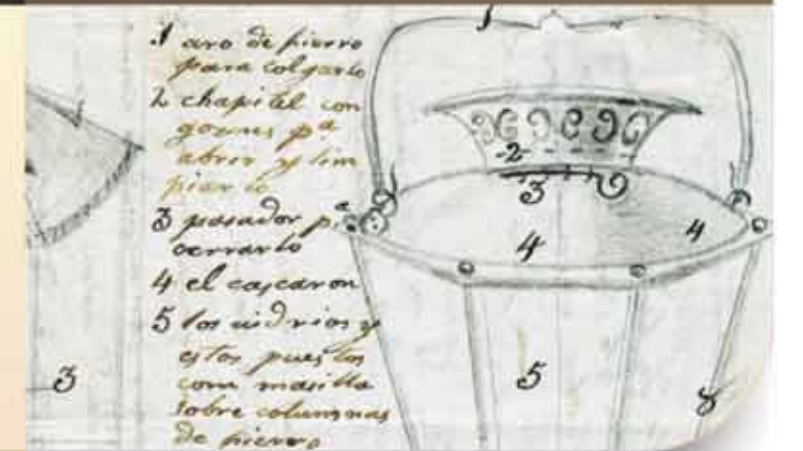 1 aro de hierro
para colgarlo
2 chapitel con
goznes pª
abrir y lim
piarlo
3 pasador pª
cerrarlo
4 el cascaron
5 los vidrios y
estos puestos
com masilla
sobre columnas
de hierro
3
1
-2-
3
4
4
5
8